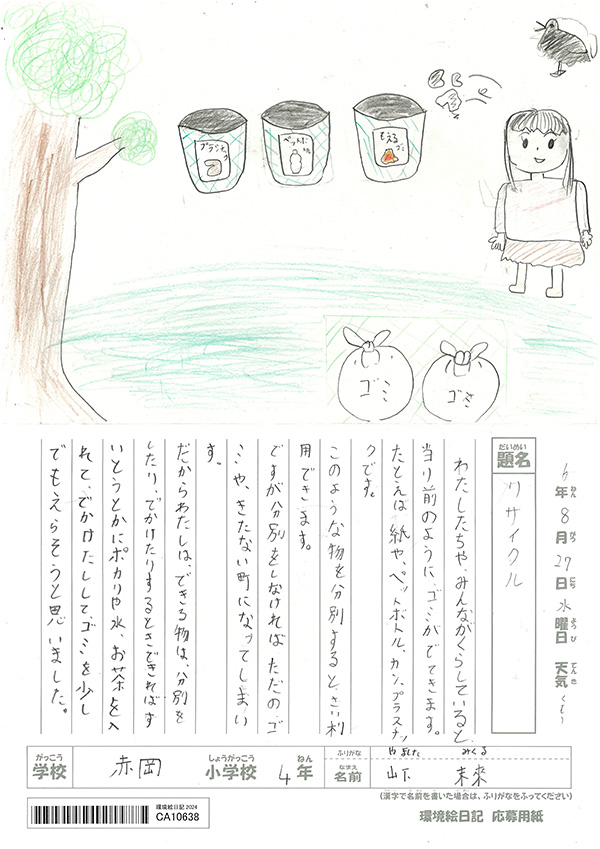 プラごみ
ペットボトル
もえるゴミ
ゴミ
ゴミ
6年8月27日水曜日 天気くもり
だいめい
題名 リサイクル
わたしたちや、みんながくらしていると、
当り前のように、ゴミがでてきます。
たとえば紙や、ペットボトル、カン、プラスチッ
クです。
このような物を分別すると、さい利
用できます。
ですが分別をしなければただのゴ
ミや、きたない町になってしまいま
す。
だからわたしは、できる物は、分別を
したり、でかけたりするときできればす
いとうとかにポカリや水、お茶を入
れて、でかけたししてゴミを少し
でもえらそうと思いました。
がっこう しょうがっこう ねん ふりがな やました みくる
学校 赤岡 小学校 4年 なまえ 名前 山下 未來
(漢字で名前を書いた場合は、ふりがなをふってください)
環境絵日記2024
CA10638
環境絵日記 応募用紙